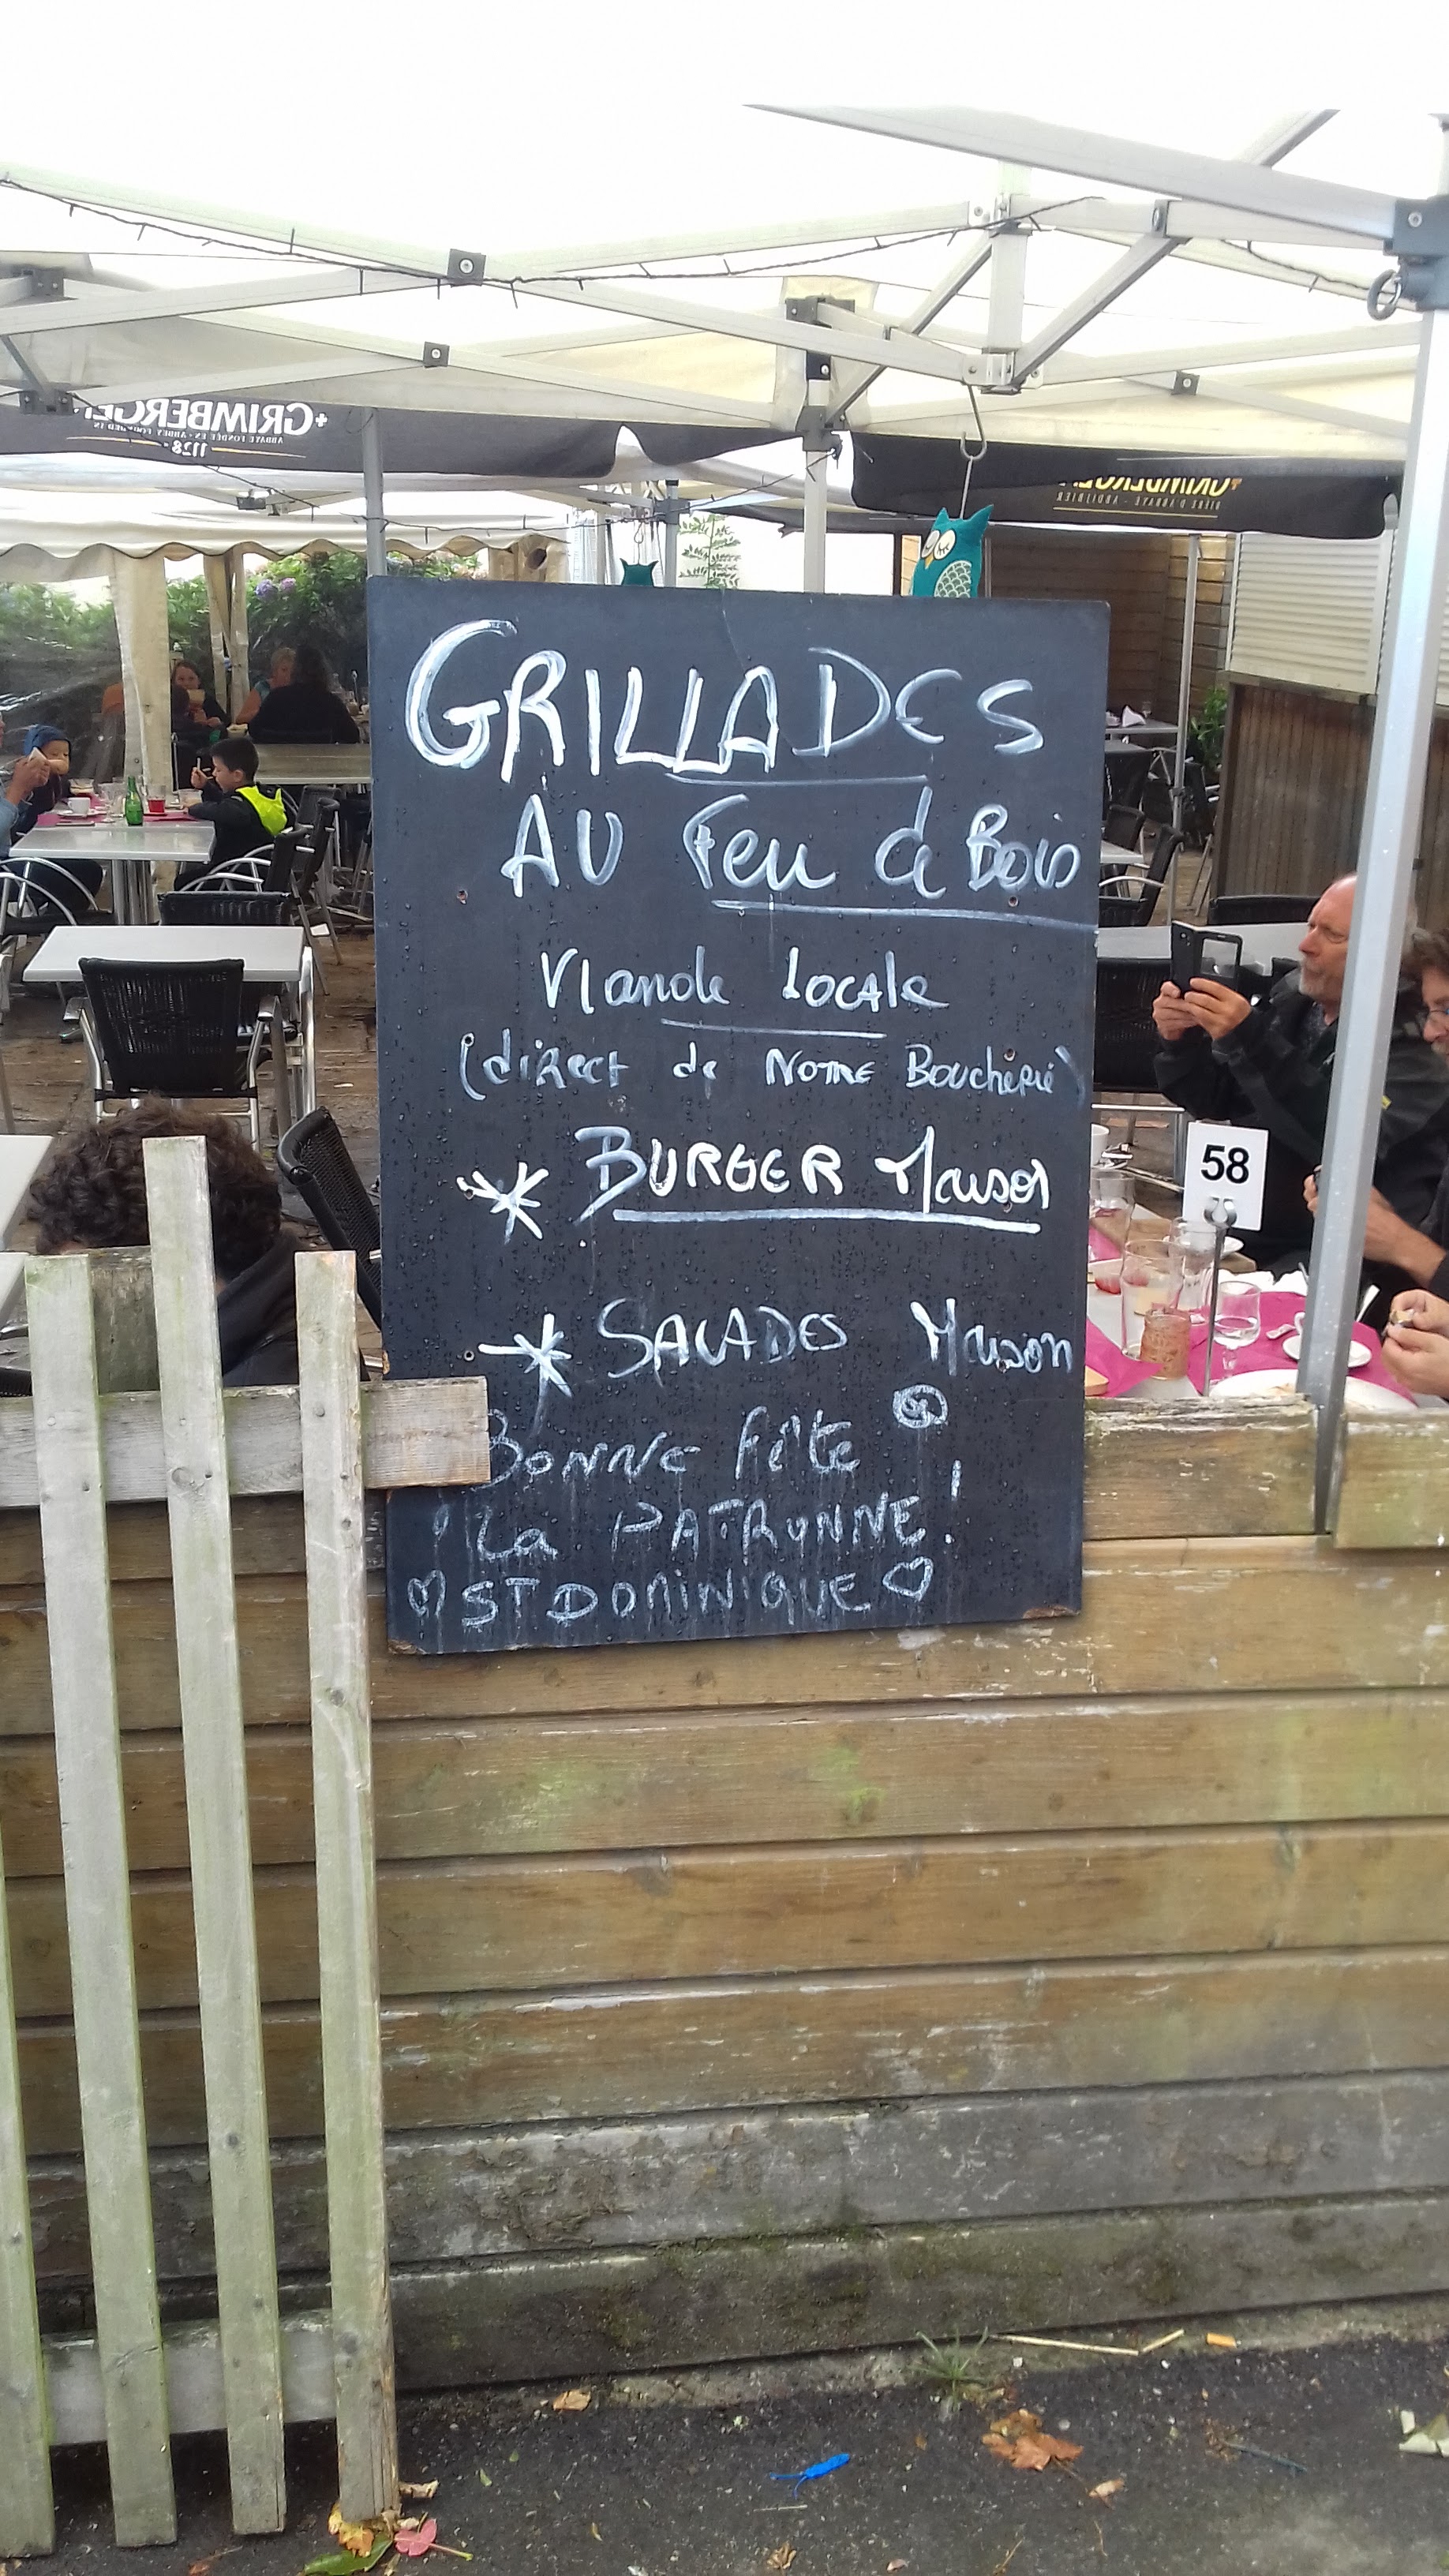 GRIMBERGEN
ABBAYE FONDÉE EN · ABBEY FOUNDED IN
1128
GRIMBERGEN
BIÈRE D'ABBAYE - ABDIJBIER
GRILLADES
AU Feu de Bois
Viande Locale
(direct de NOTRE Boucherie)
* BURGER Maison
* SALADES Maison
BONNE fête
La PATRONNE!
ST DOMINIQUE
58